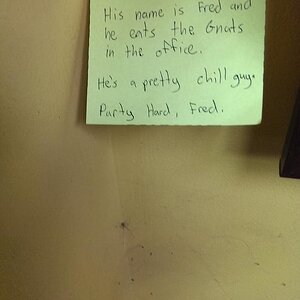 His name is Fred and
he eats the Gnats
in the office.
He's a pretty chill guy.
Party Hard, Fred.